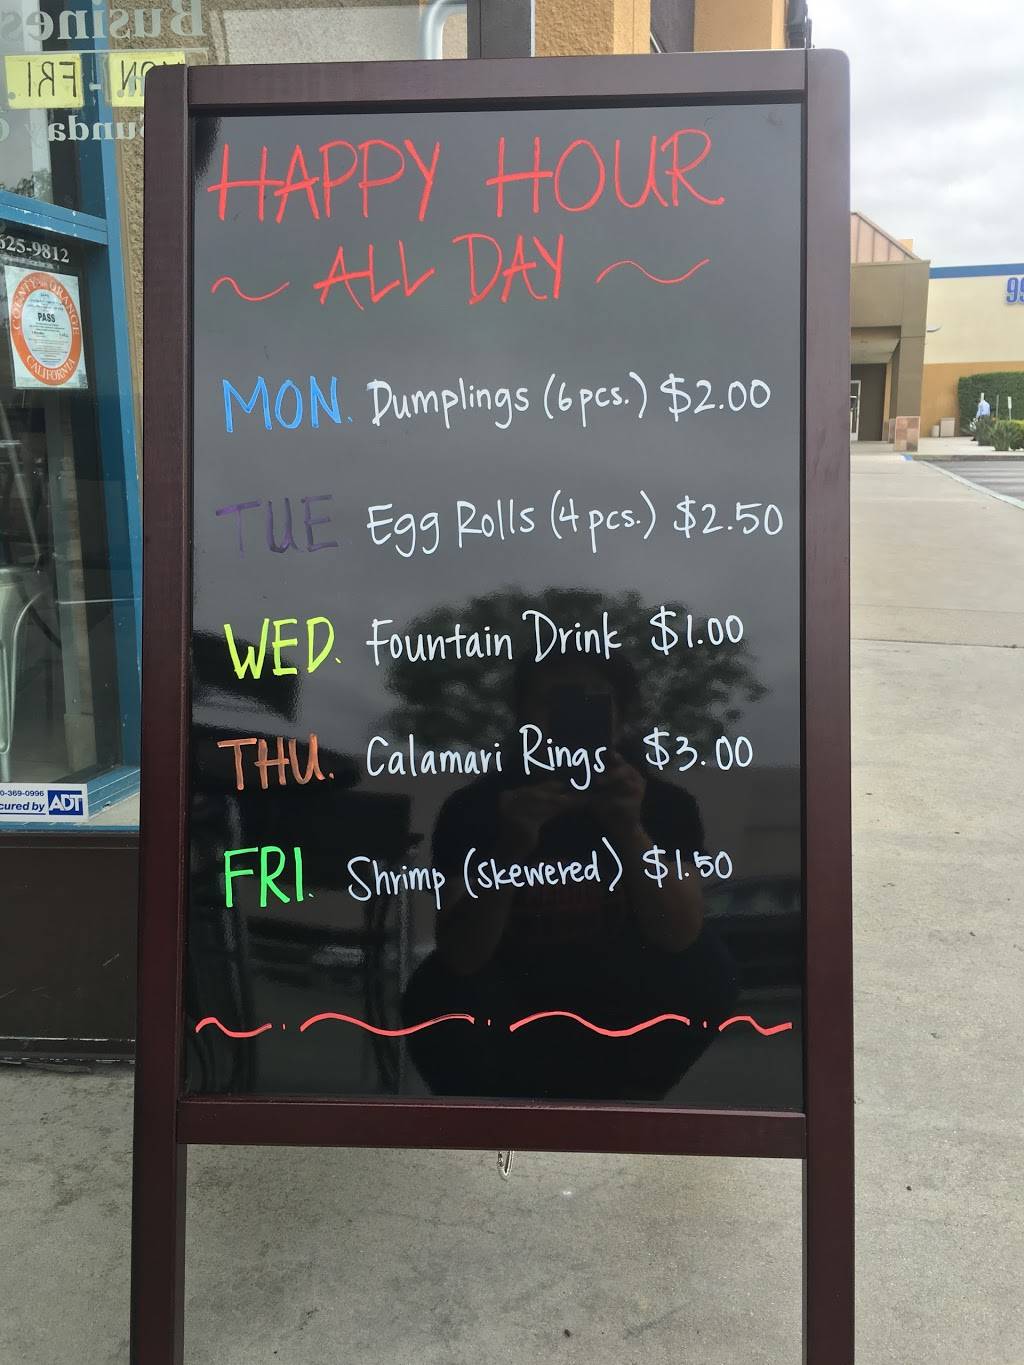 HAPPY HOUR
~ ALL DAY ~
MON. Dumplings (6 pcs.) $2.00
TUE Egg Rolls (4 pcs.) $2.50
WED. Fountain Drink $1.00
THU. Calamari Rings $3.00
FRI. Shrimp (skewered) $1.50
Busines
MON - FRI.
Sunday
625-9812
COUNTY OF ORANGE
PASS
CALIFORNIA
0-369-0996
cured by ADT
99